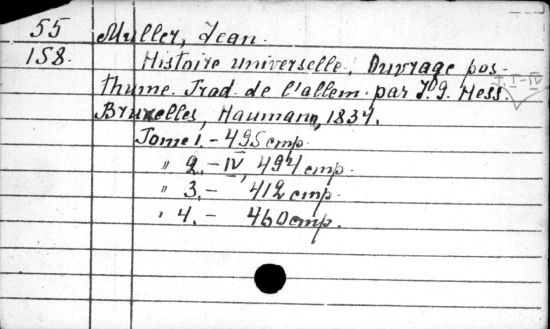 55 Muller, Jean.
158. Histoire universelle. Ouvrage pos-
thume. Trad. de l'allem. par J. G. Hess.
т. I-IV
Bruxelles, Haumann, 1834.
Tome 1. - 495 стр.
" 2. - IV, 494 стр.
" 3. - 412 стр.
" 4. - 460 стр.